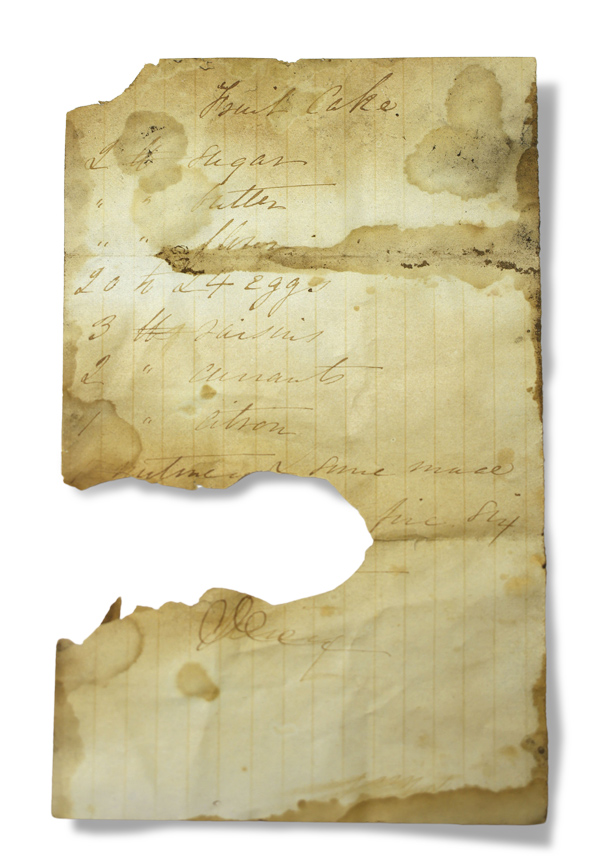 Fruit Cake.
2 lb sugar
" " butter
" " flour
20 to 24 eggs
3 lbs raisins
2 " currants
1 " citron
nutmeg & some mace